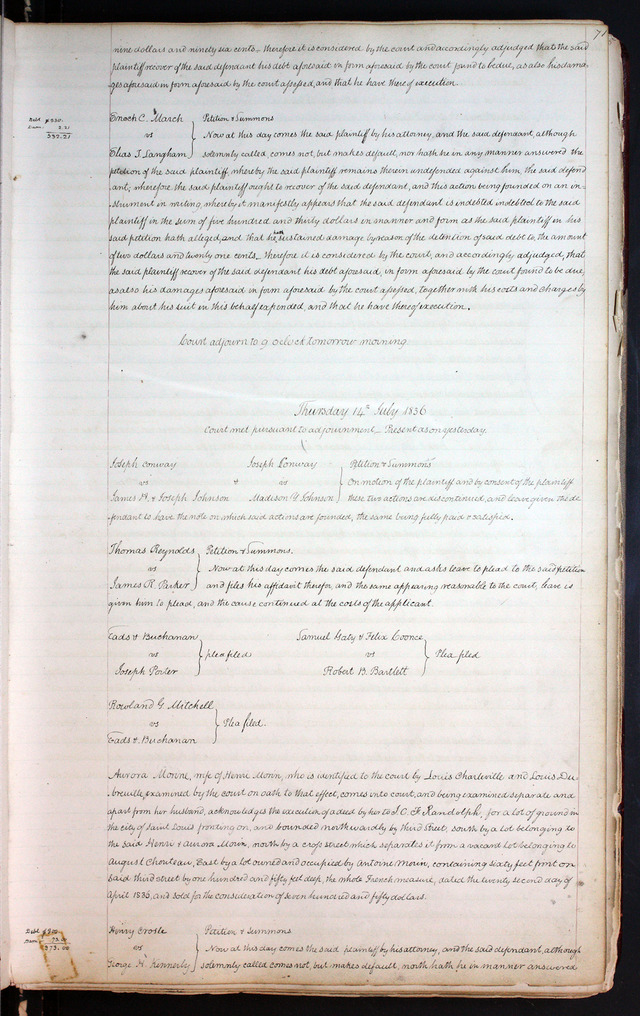 71
nine dollars and ninety six cents – therefore it is considered by the court and accordingly adjudged that the said
plaintiff recover of the said defendant his debt aforesaid in form aforesaid by the court found to be due, as also his dama-
ges aforesaid in form aforesaid by the court assessed, and that he have thereof execution.
Debt $530.
Dam. 2.21
532.21
Enoch C. March } Petition & Summons
vs Now at this day comes the said plaintiff by his attorney, and the said defendant, although
Elias T. Langham solemnly called, comes not, but makes default, nor hath he in any manner answered the
petition of the said plaintiff, whereby the said plaintiff remains therein undefended against him, the said defend
ant; wherefore the said plaintiff ought to recover of the said defendant, and this action being founded on an in-
strument in writing, whereby it manifestly appears that the said defendant is indebted indebted to the said
plaintiff in the sum of five hundred and thirty dollars in manner and form as the said plaintiff in his
said petition hath alleged, and that he hath sustained damage by reason of the detention of said debt to the amount
of two dollars and twenty one cents. therefore it is considered by the court, and accordingly adjudged, that
the said plaintiff recover of the said defendant his debt aforesaid, in form aforesaid by the court found to be due,
as also his damages aforesaid in form aforesaid by the court assessed, together with his costs and charges by
him about his suit in this behalf expended, and that he have thereof execution.
Court adjourn to 9 oclock tomorrow morning
Thursday 14th July 1836
Court met pursuant to adjournment – Present as on yesterday.
Joseph Conway Joseph Conway } Petition & Summons
vs & vs On motion of the plaintiff and by consent of the plaintiff
James H. & Joseph Johnson Madison Y Johnson these two actions are discontinued, and leave given the de
fendant to have the note on which said actions are founded, the same being fully paid & satisfied.
Thomas Reynolds } Petition & Summons.
vs Now at this day comes the said defendant and asks leave to plead to the said petition
James R. Parker and files his affidavit therefor, and the same appearing reasonable to the court, leave is
given him to plead, and the cause continued at the costs of the applicant.
Eads & Buchanan Samuel Gaty & Felix Coonce
vs } plea filed vs } Plea filed
Joseph Porter Robert B. Bartlett
Rowland G Mitchell
vs } Plea filed.
Eads & Buchanan
Aurora Morin, wife of Henri Morin, who is identified to the court by Louis Charleville and Louis Du
breuille, examined by the court on oath to that effect, comes into court, and being examined separate and
apart from her husband, acknowledges the execution of a deed by her to J. C. F. Randolph, for a lot of ground in
the city of Saint Louis fronting on, and bounded northwardly by third street, south by a lot belonging to
the said Henri & Aurora Morin, north by a cross street which separates it from a vacant lot belonging to
August Chouteau, East by a lot owned and occupied by Antoine Morin, containing sixty feet front on
said third street by one hundred and fifty feet deep, the whole French measure, dated the twenty second day of
April 1830, and sold for the consideration of seven hundred and fifty dollars.
Debt $900
Dam 73.00
973.00
Henry Crosle } Petition & Summons
vs Now at this day comes the said plaintiff by his attorney, and the said defendant, although
George H. Kennerly solemnly called comes not, but makes default, north hath he in manner answered